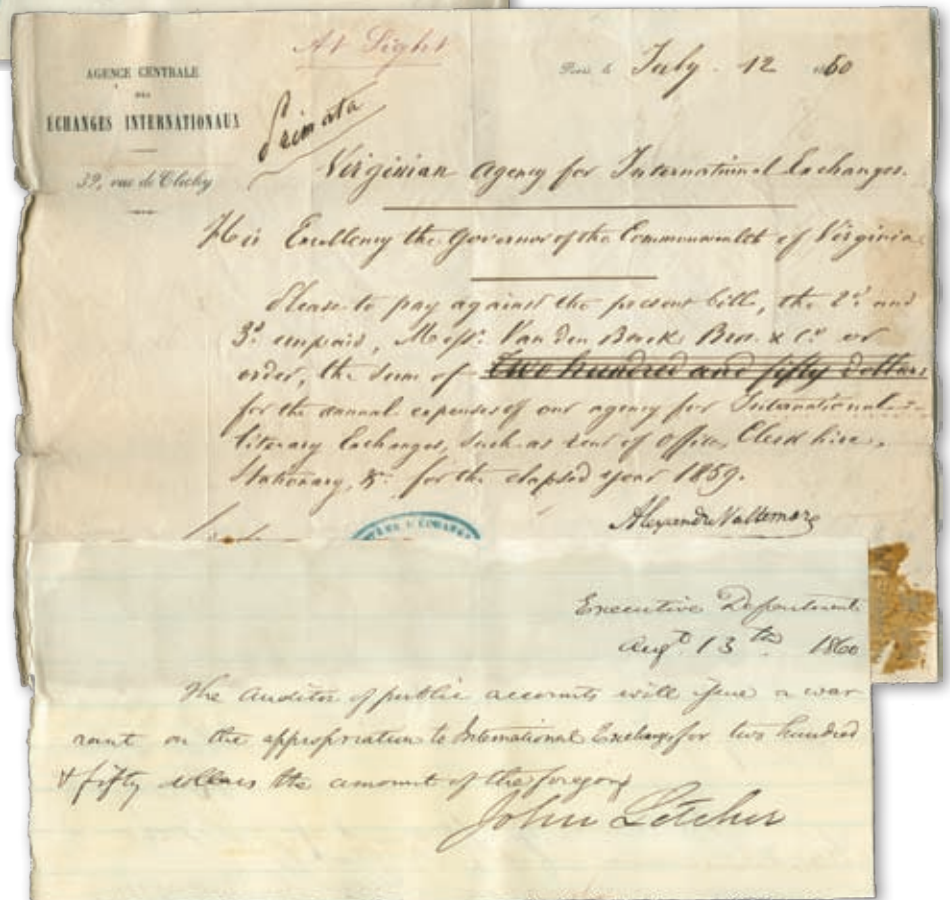 At Sight
AGENCE CENTRALE
DES
ECHANGES INTERNATIONAUX
39, rue de Clichy
Paris le July. 12 1860
Primata
Virginian Agency for International Exchanges.
His Excellency the Governor of the Commonwealth of Virginia
Please to pay against the present bill, the 2d and
3d unpaid, Messrs. Van den Broek Bros. & Co. or
order, the sum of Two hundred and fifty dollars
for the annual expenses of our agency for International
literary Exchanges, such as rent of office, Clerk hire,
Stationary, &c. for the elapsed year 1859.
Alexandre Vattemare
Executive Department
Augt. 13th 1860
The Auditor of public accounts will issue a war
rant on the appropriation to International Exchanges for two hundred
& fifty dollars the amount of the foregoing
John Letcher